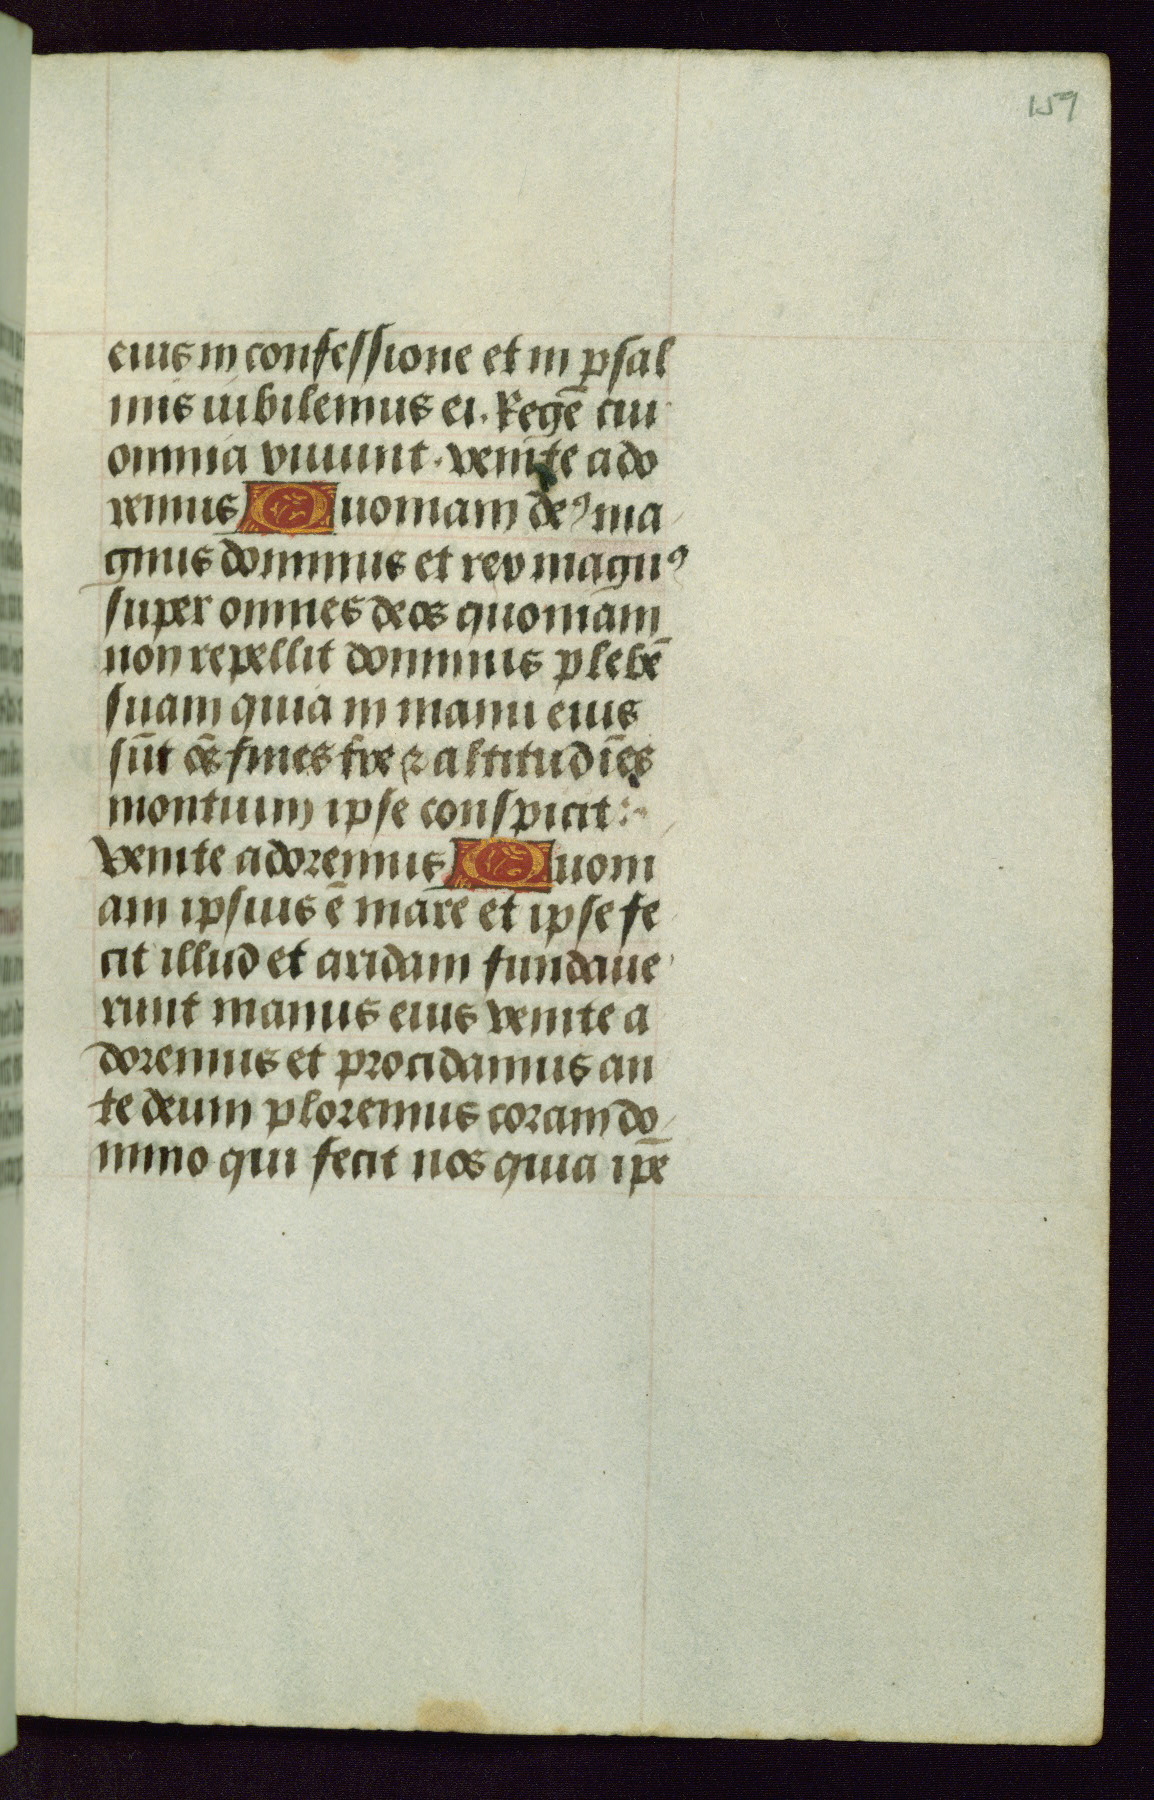 159
eius in confessione et in psal
mis iubilemus ei. Regē cui
omnia viuunt. venite ado
remus Quoniam deꝰ ma
gnus dominus et rex magnꝰ
super omnes deos quoniam
non repellit dominus plebē
suam quia in manu eius
sūt oēs fines tre ⁊ altitudīes
montium ipse conspicit:
Venite adoremus Quoni
am ipsius ē mare et ipse fe
cit illud et aridam fundaue
runt manus eius venite a
doremus et procidamus an
te deum ploremus coram do
mino qui fecit nos quia ip̄e